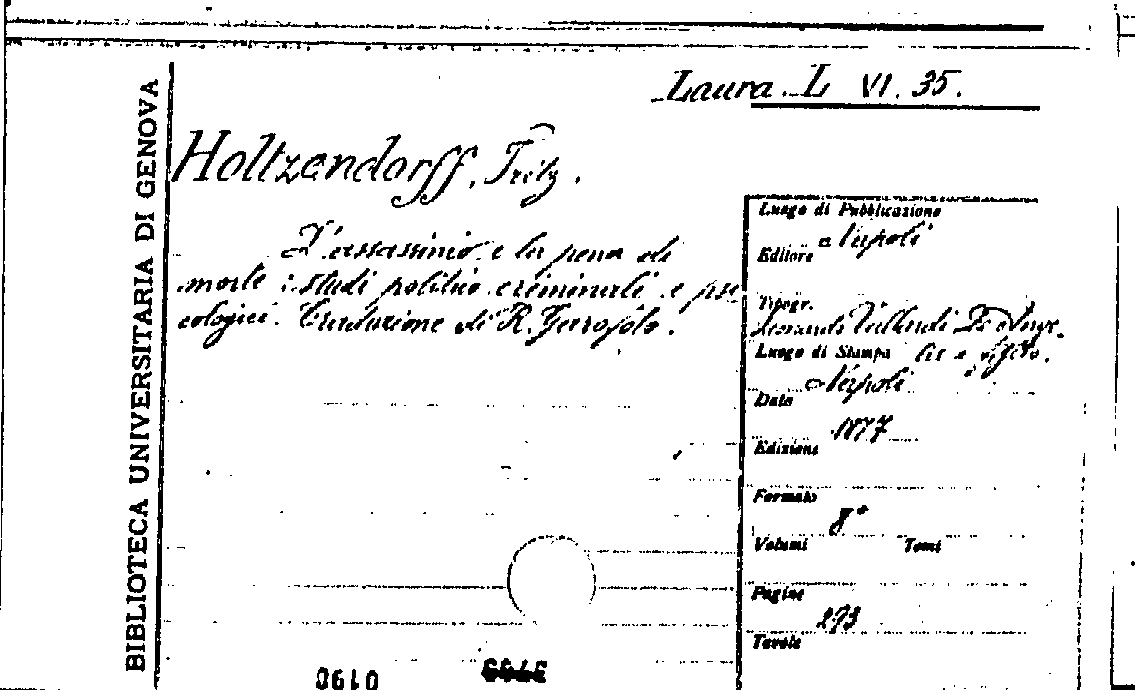 BIBLIOTECA UNIVERSITARIA DI GENOVA
Laura. L VI. 35.
Holtzendorff, Fritz.
L'assassinio e la pena di
morte : studi politico criminali e psi
cologici. Traduzione di R. Garofolo.
Luogo di Pubblicazione
Napoli
Editore
Tipogr.
Luogo di Stampa
Napoli
Data
1877
Edizione
Formato
8°
Volumi Tomi
Pagine
293
Tavole
0190